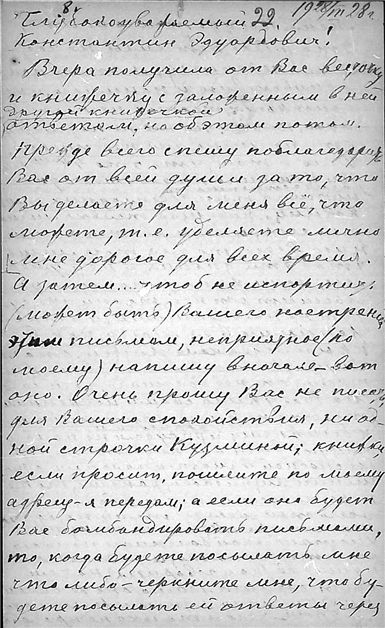 8
22. 19 28/III 28 г.
Глубокоуважаемый
Константин Эдуардович!
Вчера получила от Вас весточку
и книжечку с заложенным в ней
другой книжечкой
ответом, но об этом потом.
Прежде всего спешу поблагодарить
Вас от всей души за то, что
Вы делаете для меня всё, что
можете, т. е. уделяете лично
мне дорогое для всех время.
А затем... чтоб не испортить
(может быть) Вашего настроения
письмом, неприятное (по
моему) напишу вначале – вот
оно. Очень прошу Вас не писать,
для Вашего спокойствия, ни од-
ной строчки Кузминой; книжки
если просит, пошлите по моему
адресу – я передам; а если она будет
Вас бомбандировать письмами,
то, когда будете посылать мне
что либо – черкните мне, что бу-
дете посылать ей ответы через